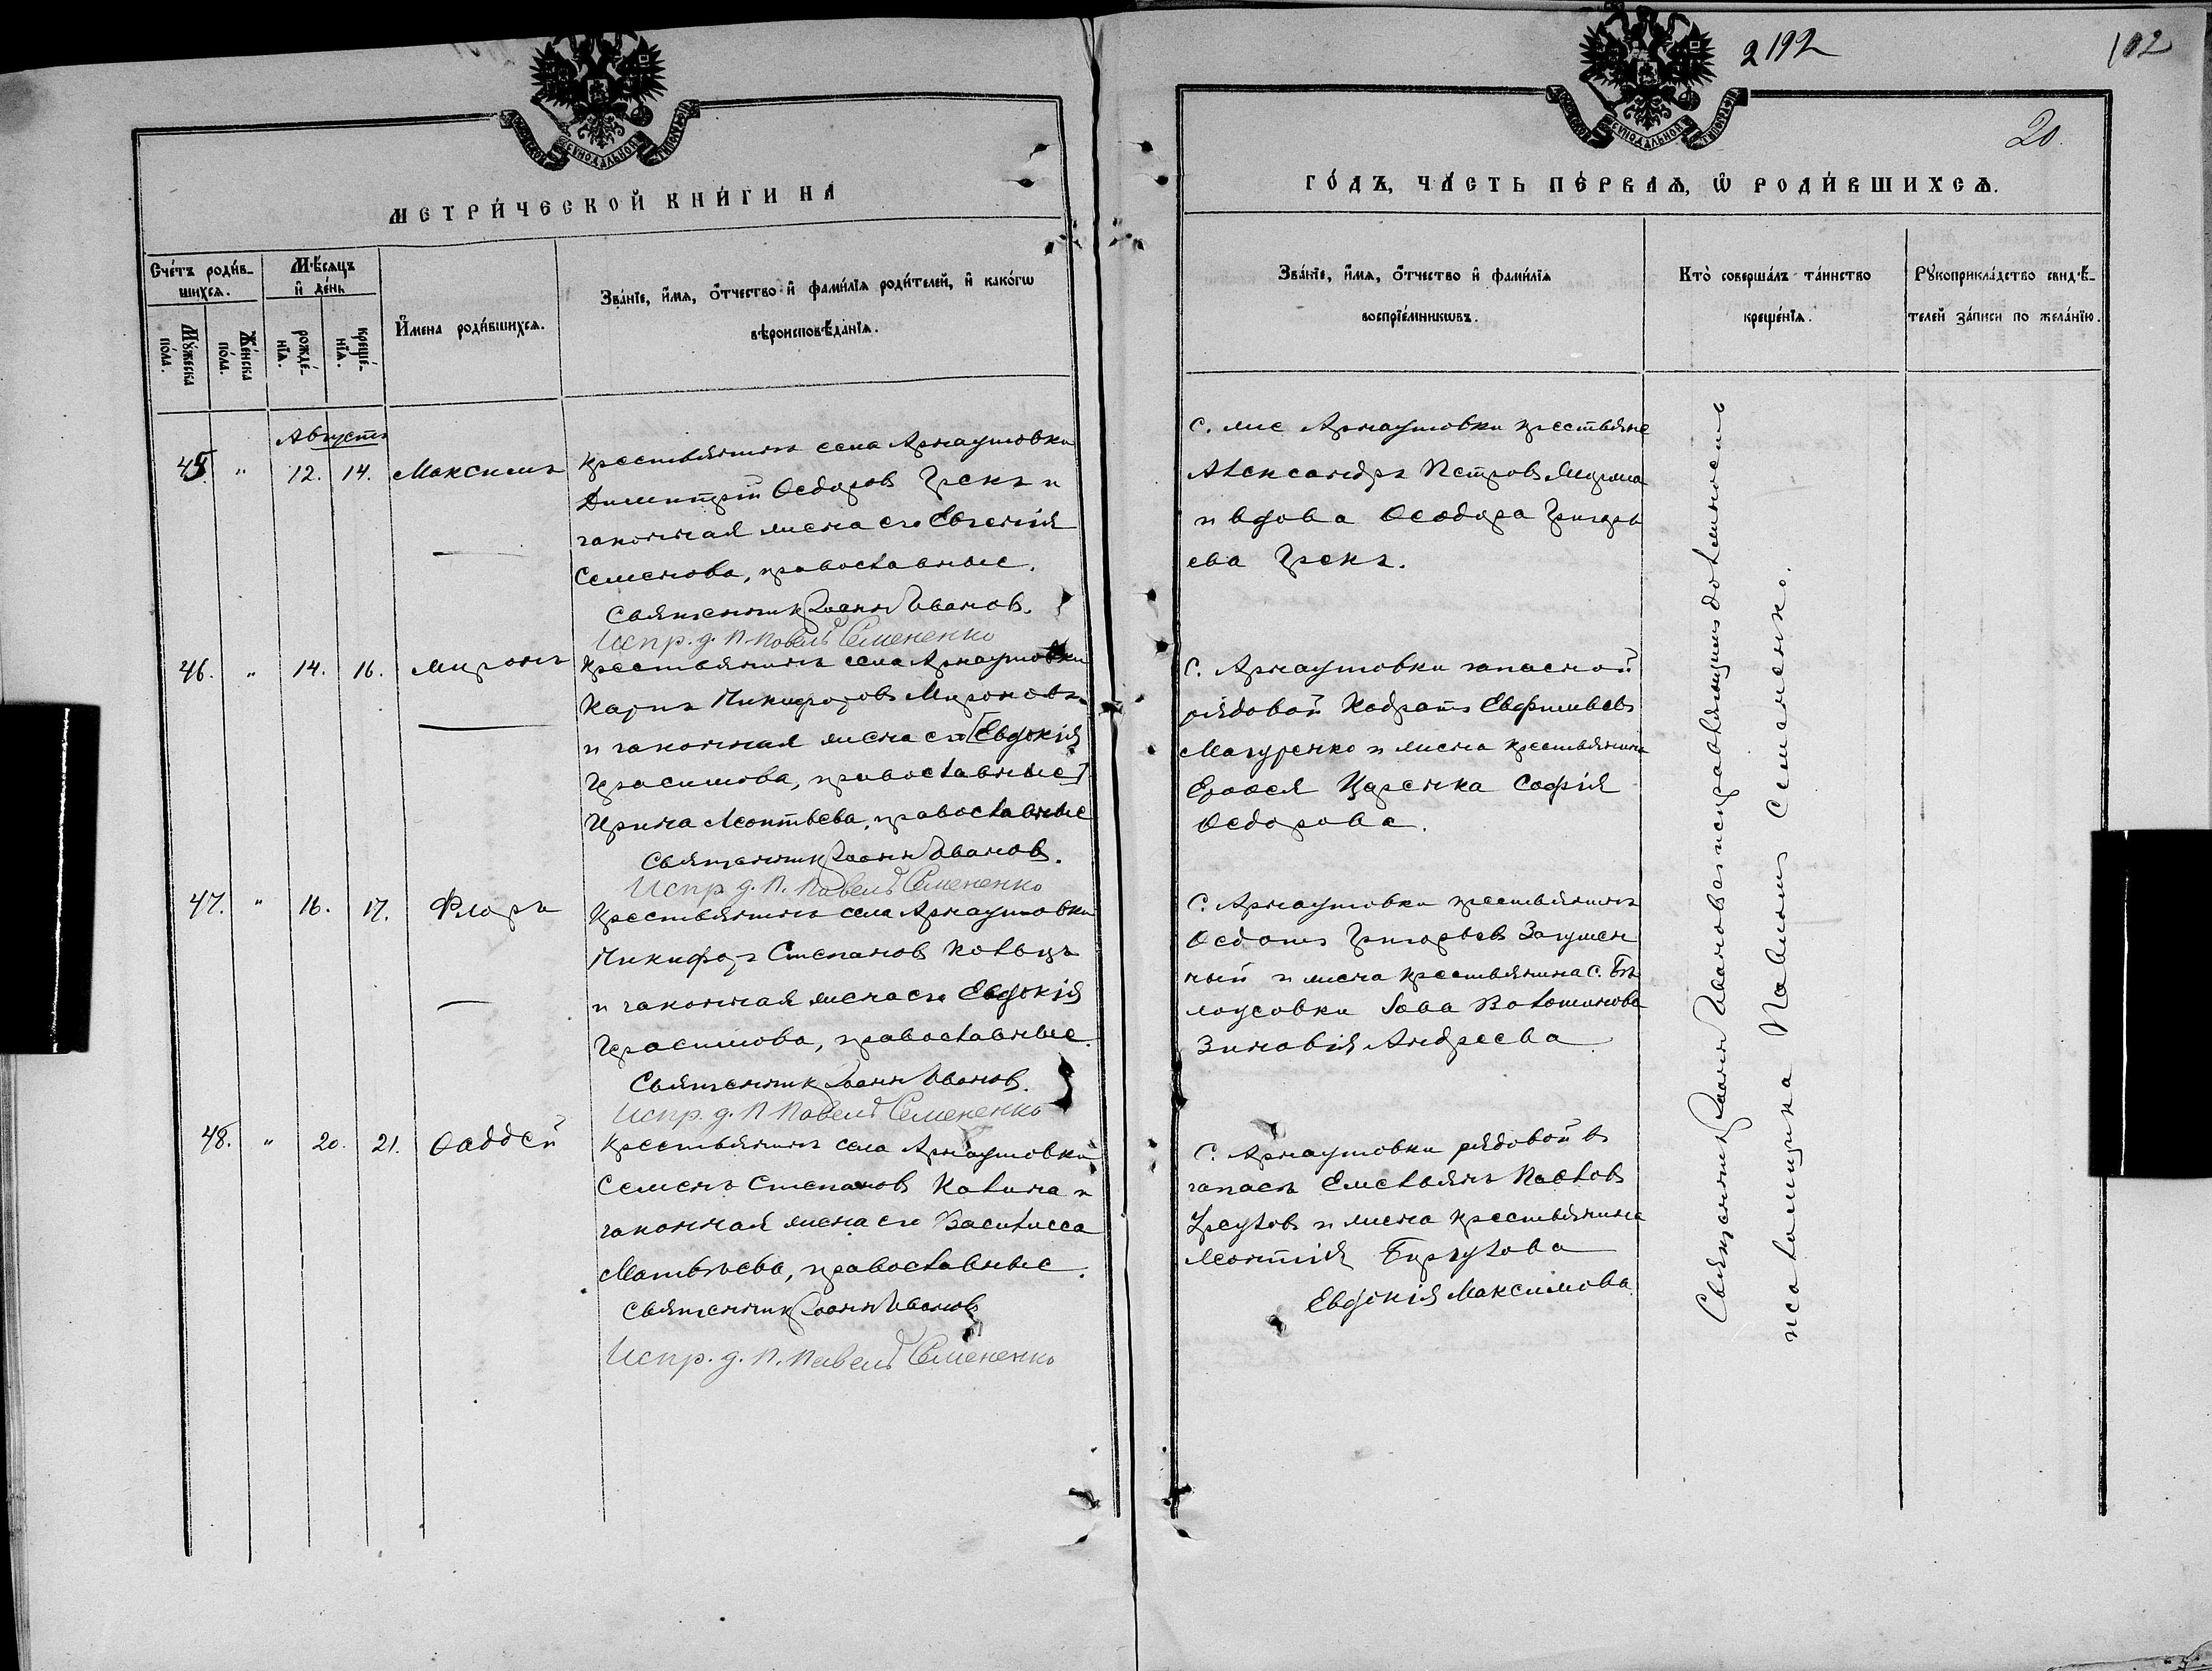 2192
102
20.
МЕТРИ́ЧЕСКОЙ КНИ́ГИ НА
ГО́ДЪ, ЧА́СТЬ ПЕ́РВАѦ, Ѡ҆ РОДИ́ВШИХСѦ.
Сче́тъ роди́в-
шихсѧ.
Мꙋ́жеска
по́ла.
Же́нска
по́ла.
Мѣ́сѧцъ
и҆ де́нь
рожде́-
нїѧ.
креще́-
нїѧ.
И҆мена роди́вшихсѧ.
Зва́нїе, и҆́мѧ, о҆́тчество и҆ фами́лїѧ роди́телей, и҆ како́гѡ
вѣроисповѣ́данїѧ.
Зва́нїе, и҆́мѧ, о҆́тчество и҆ фами́лїѧ
воспрїе́мникѡвъ.
Кто̀ соверша́лъ та́инство
креще́нїѧ.
Рꙋкоприкла́дство свидѣ́-
телей за́писи по жела́нїю.
Августъ
45. " 12. 14. Максимъ
Крестьянинъ села Арнаутовки
Димитрій Ѳедоровъ Грекъ и
законная жена его Евгенія
Семенова, православные.
Священникъ Іоаннъ Ивановъ.
Испр. д. П. Павелъ Семененко
С. же Арнаутовки крестьяне
Александръ Петровъ
и вдова Ѳеодора Григорь
ева Грекъ.
46. " 14. 16. Миронъ
Крестьянинъ села Арнаутовки
Карпъ Никифоровъ Мироновъ
и законная жена его [Евдокія
Герасимова, православные]
Ирина Леонтьева, православные
Священникъ Іоаннъ Ивановъ.
Испр. д. П. Павелъ Семененко
С. Арнаутовки запасной
рядовой Кодратъ Евфимьевъ
Мазуренко и жена крестьянина
Ероѳея Царенка Софія
Ѳедорова.
47. " 16. 17. Флоръ
Крестьянинъ села Арнаутовки
Никифоръ Степановъ
и законная жена его Евдокія
Герасимова, православные.
Священникъ Іоаннъ Ивановъ.
Испр. д. П. Павелъ Семененко
С. Арнаутовки крестьянинъ
Ѳедотъ Григорьевъ Загумен
ный и жена крестьянина с. Бѣ
лоусовки Іова Волошинова
Зиновія Андреева
48. " 20. 21. Ѳаддей
Крестьянинъ села Арнаутовки
Семенъ Степановъ Калина и
законная жена его Василисса
Матвѣева, православные.
Священникъ Іоаннъ Ивановъ
Испр. д. П. Павелъ Семененко
С. Арнаутовки рядовой въ
запасѣ Емельянъ Павловъ
и жена крестьянина
Леонтія
Евдокія Максимова
Священникъ Іоаннъ Ивановъ и исправляющимъ должность
псаломщика Павломъ Семененко.